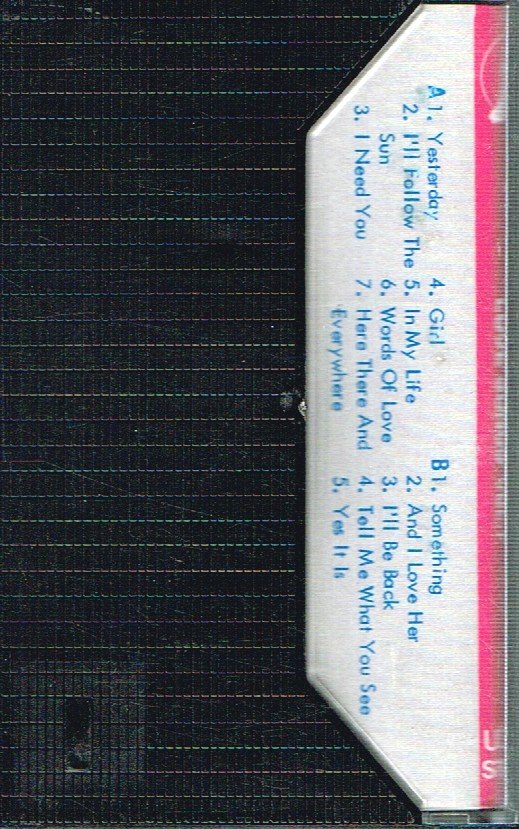 A 1. Yesterday
2. I'll Follow The
Sun
3. I Need You
4. Girl
5. In My Life
6. Words Of Love
7. Here There And
Everywhere
B 1. Something
2. And I Love Her
3. I'll Be Back
4. Tell Me What You See
5. Yes It Is
U
S